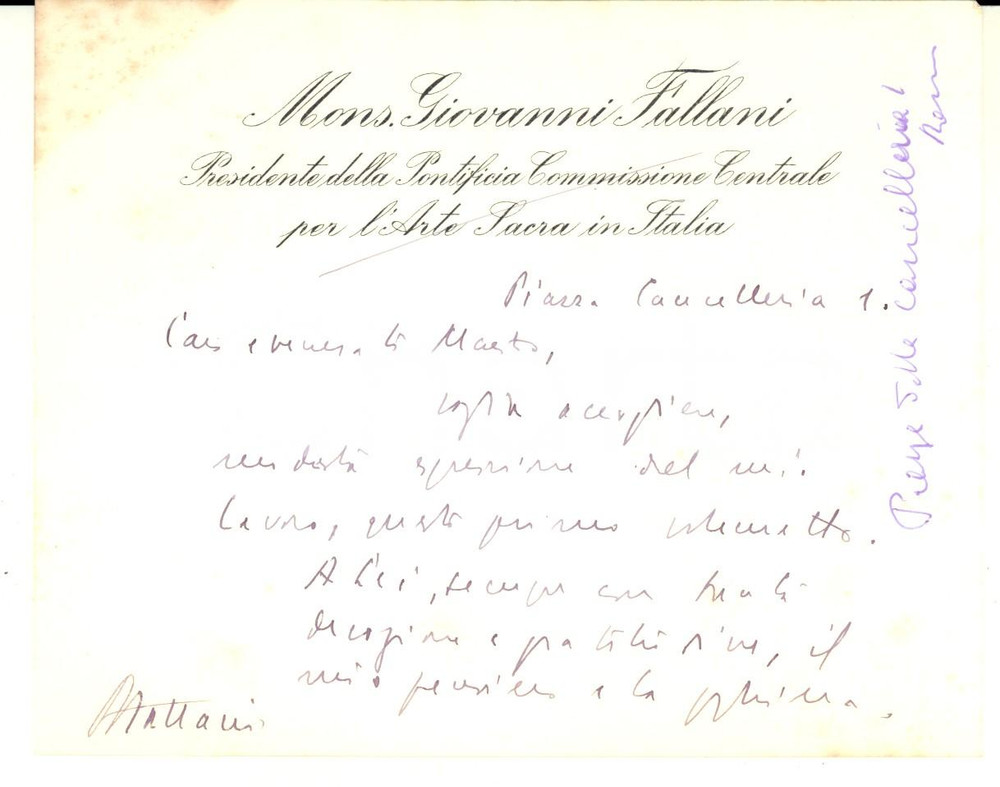 Mons. Giovanni Fallani
Presidente della Pontificia Commissione Centrale
per l'Arte Sacra in Italia
Piazza Cancelleria 1.
Caro e venerato Maestro,
voglia accogliere,
modesta espressione del mio
lavoro, questo primo volumetto.
A Lei, sempre con tanta
devozione e gratitudine, il
mio pensiero e la preghiera.
GFallani
Piazza della Cancelleria 1
Roma